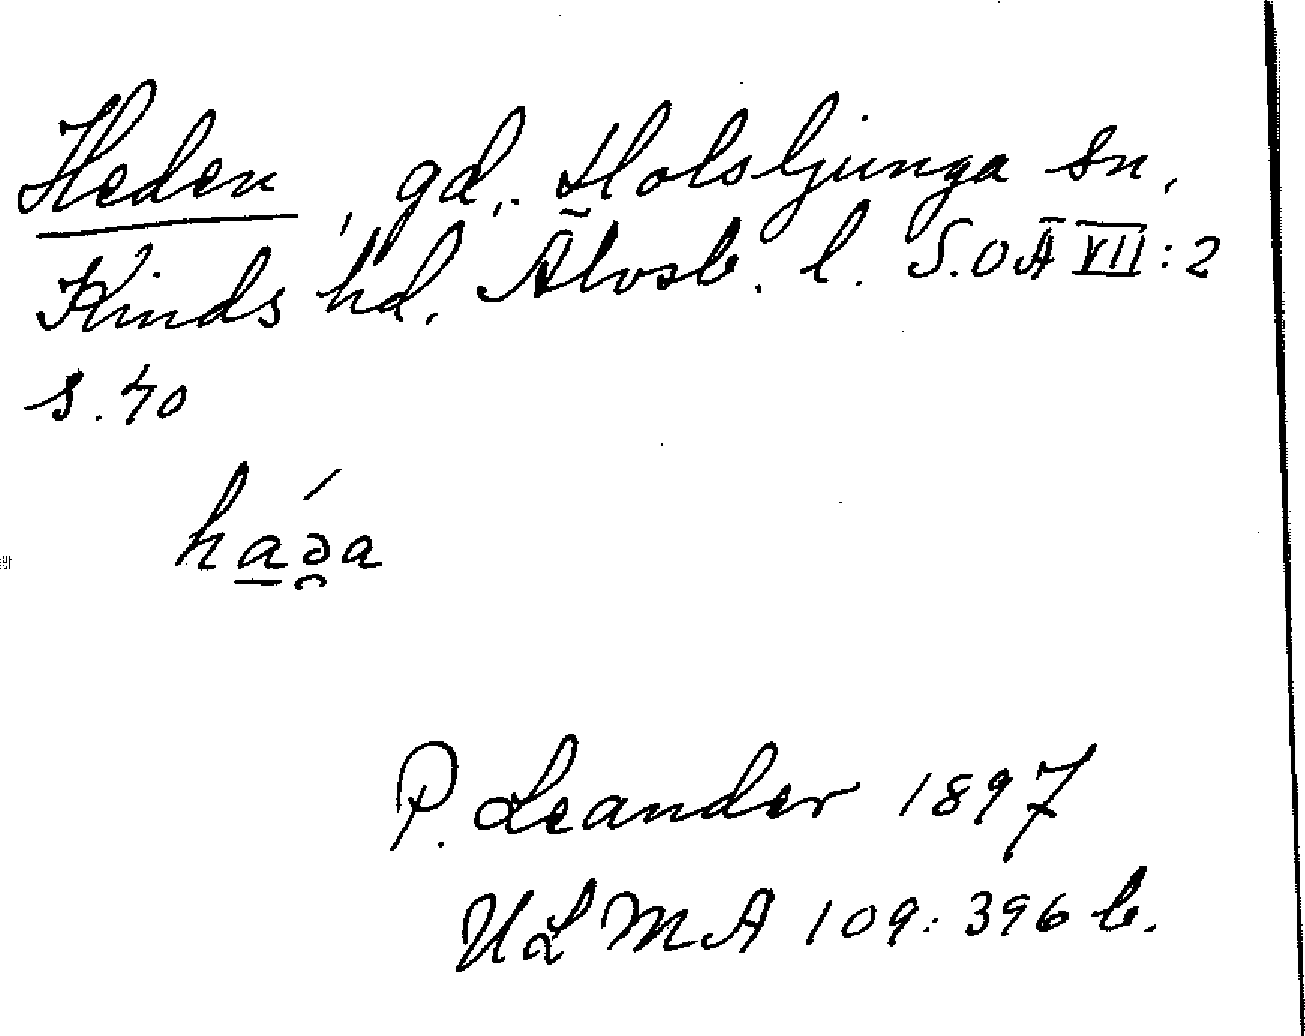 Heden, gd,. Holsljunga sn,
Kinds hd. Älvsb. l. S.O.Ä VII:2
s. 40
ha̲ə̯́a
P. Leander 1897
ULMA 109:396 b.